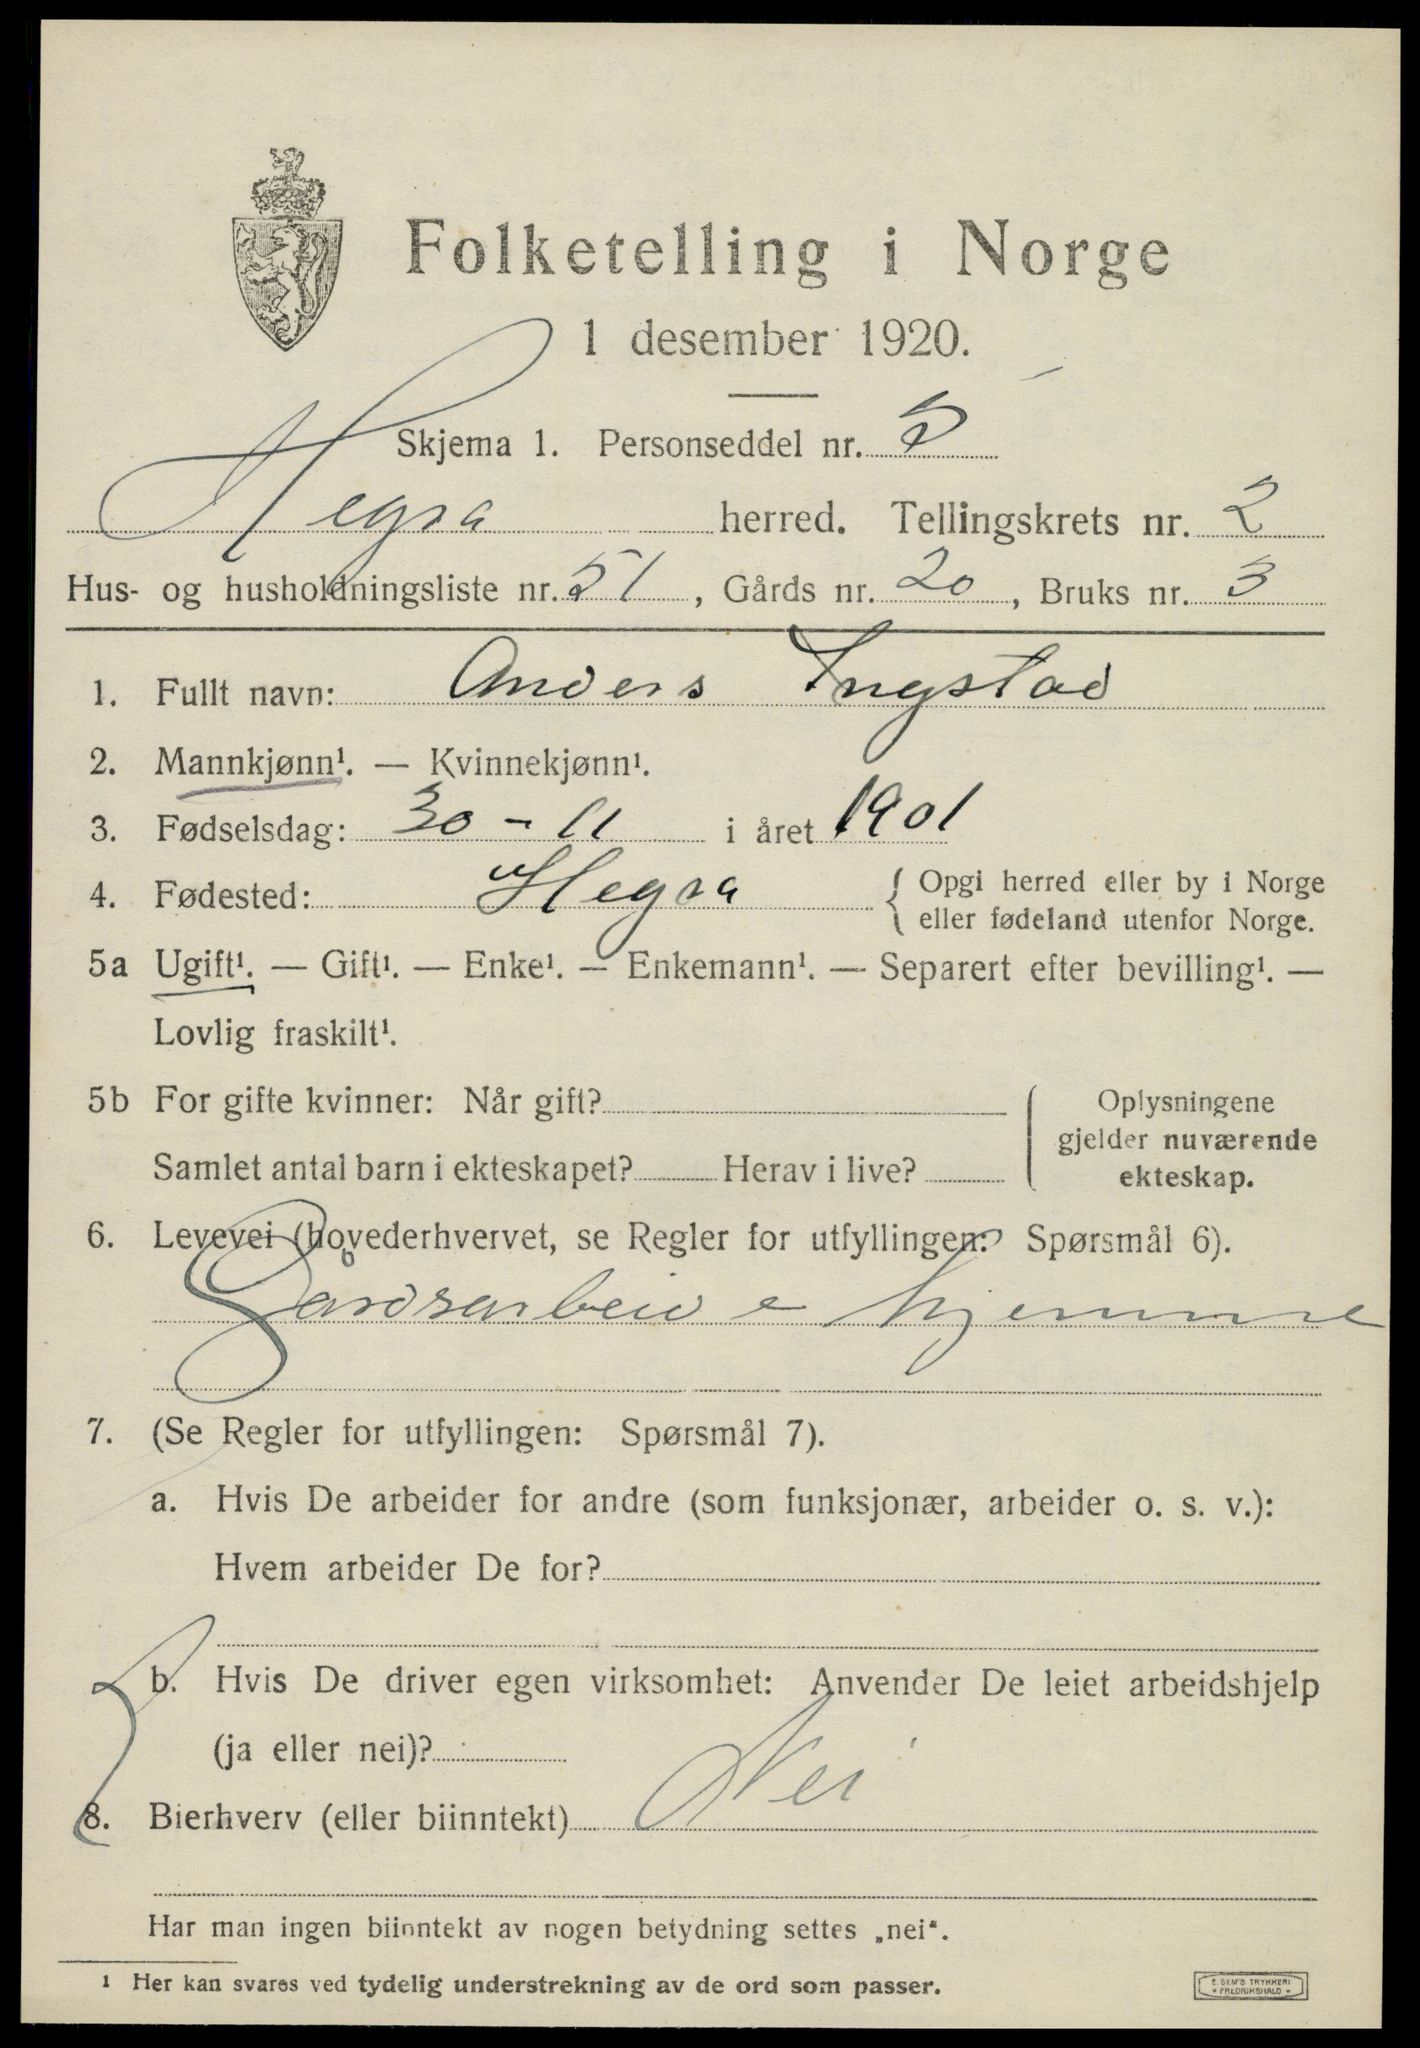 Folketelling i Norge
1 desember 1920.
Skjema 1. Personseddel nr. 5
Hegra herred. Tellingskrets nr. 2
Hus- og husholdningsliste nr. 51, Gårds nr. 20, Bruks nr. 3
1. Fullt navn: Anders Ingstad
2. Mannkjønn¹. — Kvinnekjønn¹.
3. Fødselsdag: 30 - 11 i året 1901
4. Fødested: Hegra { Opgi herred eller by i Norge
eller fødeland utenfor Norge.
5a Ugift¹. — Gift¹. — Enke¹. — Enkemann¹. — Separert efter bevilling¹. —
Lovlig fraskilt¹.
5b For gifte kvinner: Når gift? Oplysningene
gjelder nuværende
Samlet antal barn i ekteskapet? Herav i live? ekteskap.
6. Levevei (hovederhvervet, se Regler for utfyllingen: Spørsmål 6).
Gårdsarbeid e hjemme
7. (Se Regler for utfyllingen: Spørsmål 7).
a. Hvis De arbeider for andre (som funksjonær, arbeider o. s. v.):
Hvem arbeider De for?
b. Hvis De driver egen virksomhet: Anvender De leiet arbeidshjelp
(ja eller nei)?
8. Bierhverv (eller biinntekt) Nei
Har man ingen biinntekt av nogen betydning settes „nei“.
1 Her kan svares ved tydelig understrekning av de ord som passer.
E. SEM'S TRYKKERI
FREDRIKSHALD